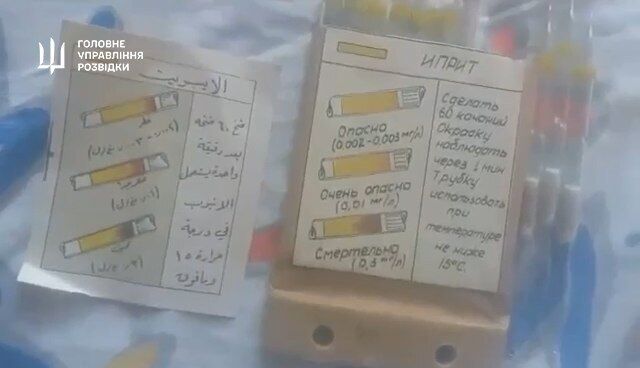 ГОЛОВНЕ
УПРАВЛІННЯ
РОЗВІДКИ
الايبريت
خطر
بعد دقيقة
الانبوب
في درجة
حرارة ١٥
ИПРИТ
Опасно
(0,002-0,003 мг/л)
Очень опасно
(0,01 мг/л)
Смертельно
(0,3 мг/л)
Сделать
60 качаний
Окраску
наблюдать
через 1 мин
Трубку
использовать
при
температуре
не ниже
15°С.